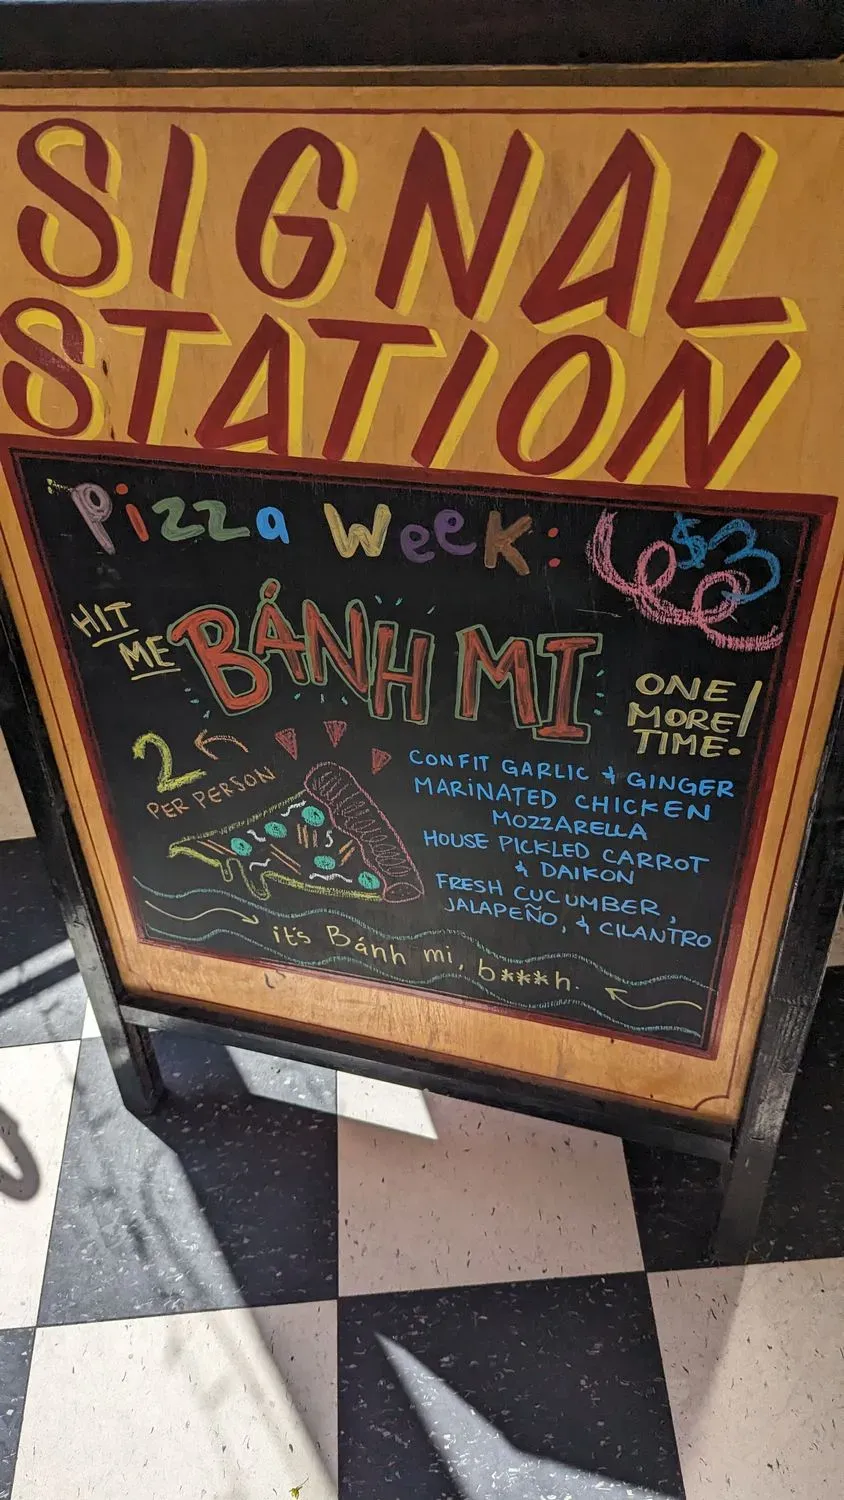 SIGNAL
STATION
Pizza Week:
$3
HIT
ME
BÁNH MI
ONE
MORE
TIME.!
2
PER PERSON
CONFIT GARLIC & GINGER
MARINATED CHICKEN
MOZZARELLA
HOUSE PICKLED CARROT
& DAIKON
FRESH CUCUMBER,
JALAPEÑO, & CILANTRO
it's Bánh mi, b***h.